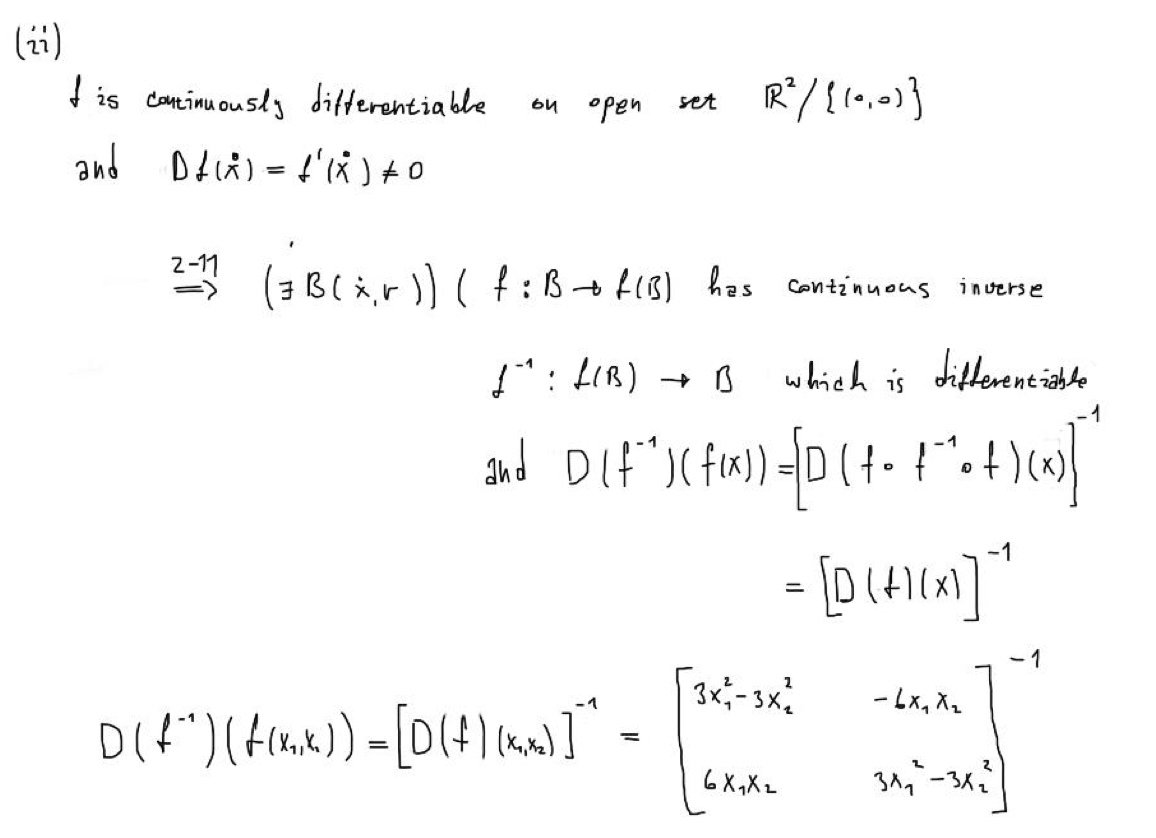 (ii)
f is continuously differentiable on open set ℝ²/{(0,0)}
and Df(x̊) = f'(x̊) ≠ 0
2-11 ⟹ (∃ B(ẋ,r)) ( f : B → f(B) has continuous inverse
f⁻¹ : f(B) → B which is differentiable
and D(f⁻¹)(f(x)) = [D(f∘f⁻¹∘f)(x)]⁻¹
= [D(f)(x)]⁻¹
D(f⁻¹)(f(x₁,x₁)) = [D(f)(x₁,x₂)]⁻¹ = [3x₁²-3x₂² -6x₁x₂
6x₁x₂ 3x₁²-3x₂²]⁻¹